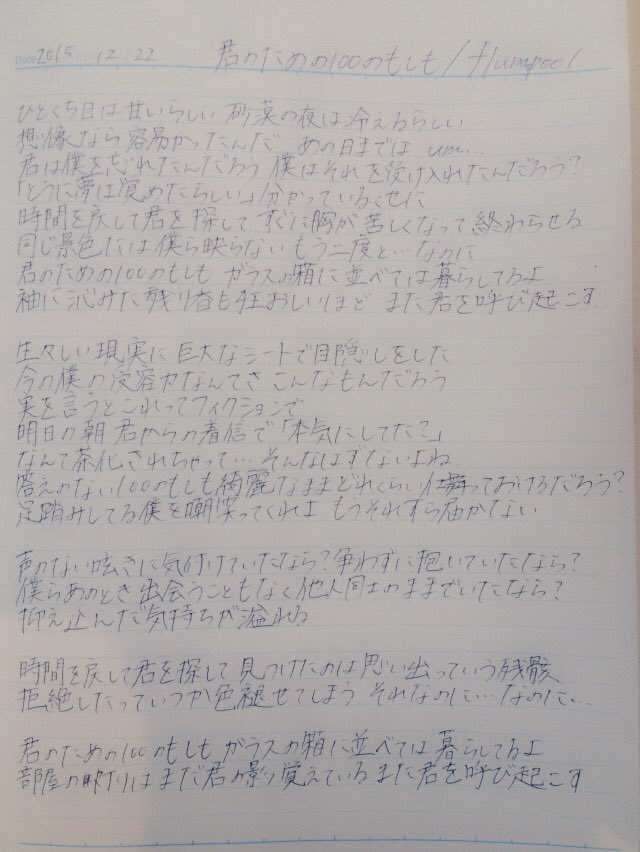 Date 2015 12.22 君のための100のもしも/flumpool
ひとくち目は甘いらしい 砂漠の夜は冷えるらしい
想像なら容易かったんだ あの日までは um...
君は僕を忘れたんだろう 僕はそれを受け入れたんだろう?
「とうに夢は覚めたらしい」分かっているくせに
時間を戻して君を探して すぐに胸が苦しくなって終わらせる
同じ景色には僕ら映らない もう二度と…なのに
君のための100のもしも ガラスの箱に並べては暮らしてるよ
袖に沁みた残り香も狂おしいほど また君を呼び起こす
生々しい現実に巨大なシートで目隠しをした
今の僕の受容力なんてさ こんなもんだろう
実を言うとこれってフィクションで
明日の朝 君からの着信で「本気にしてた?」
なんて茶化されちゃって…そんなはずないよね
答えのない100のもしも綺麗なままどれくらい仕舞っておけるだろう?
足踏みしてる僕を嘲笑ってくれよ もうそれすら届かない
声のない呟きに気付けていたなら?争わずに抱いていたなら?
僕らあのとき出会うこともなく他人同士のままでいたなら?
抑え込んだ気持ちが溢れる
時間を戻して君を探して 見つけたのは思い出っていう残骸
拒絶したっていつか色褪せてしまう それなのに…なのに…
君のための100のもしも ガラスの箱に並べては暮らしてるよ
部屋の灯りはまだ君の影 覚えている また君を呼び起こす